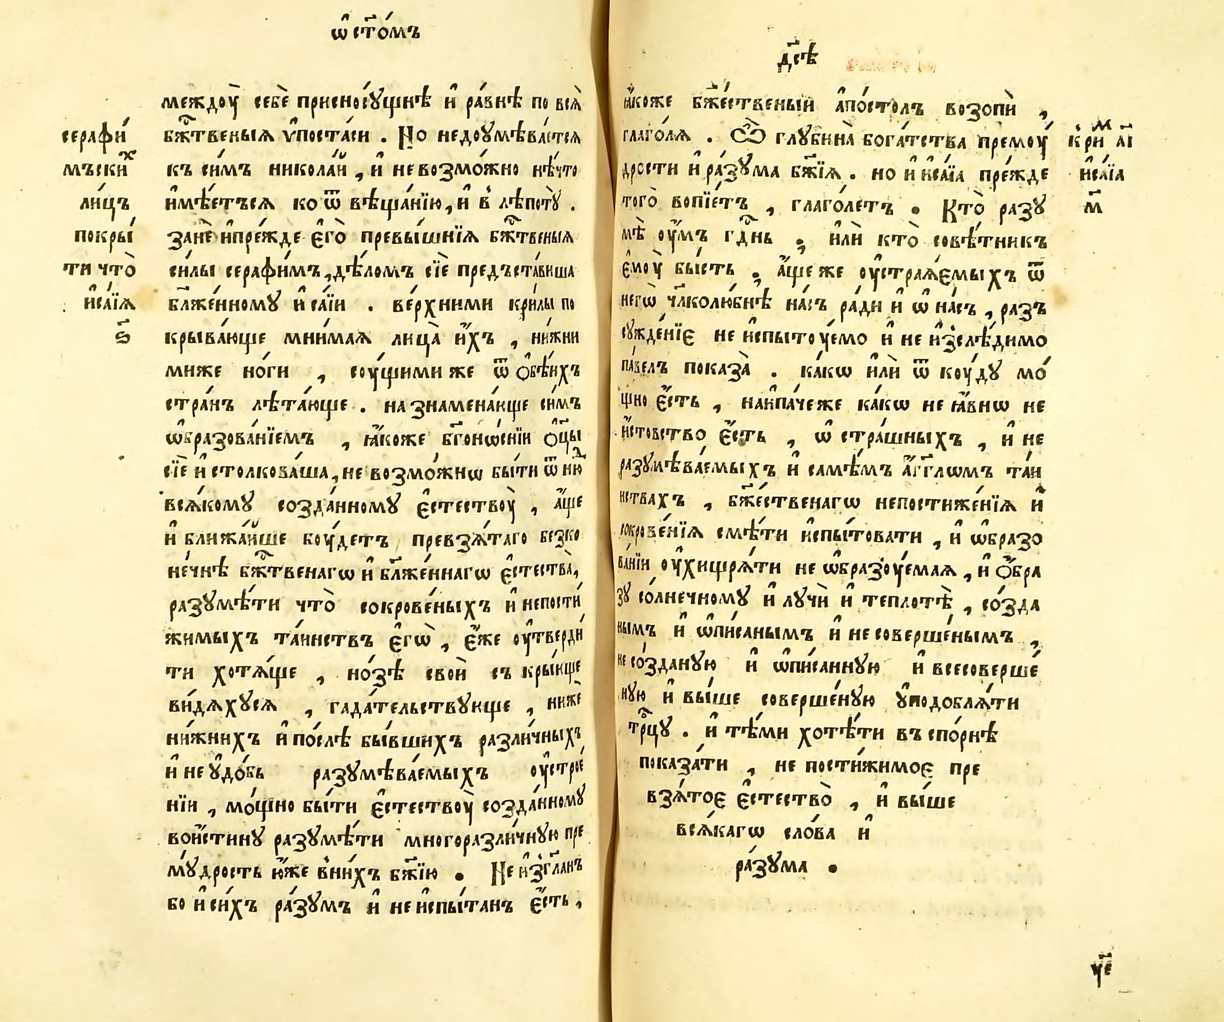 ѿ ст҃о́мъ
междоу̀ себѐ присносꙋ́щнѣ и҆ ра́внѣ по всѧ̀
бж҃твеныѧ ѵ҆поста́си . Но недоꙋмѣва́етсѧ
къ си́мъ никола́й , и҆ невозмо́жно нѣ́что
и҆мѣ́етъсѧ ко ѿвѣща́нїю , и҆ в лѣ́потꙋ .
занѐ и҆ пре́жде є҆го̀ превы́шнїѧ бж҃твеныѧ
си́лы серафи́мъ , дѣ́ломъ сїѐ предъста́виша
бл҃же́нномꙋ и҆са́їи . ве́рхними кри́лы по
крыва́юще мни́маѧ лица̀ и҆́хъ , ни́жни
миже но́ги , соу́щими же ѿ ѻ҆бѣ́ихъ
стра́нъ лѣта́юще . на знамена́нїе си́мъ
ѡ҆бразова́нїемъ , ꙗ҆́коже бг҃оно́снїи ѻ҆тцы̀
сїѐ и҆столкова́ша , не возмо́жнѡ бы́ти ѿню́д
всѧ́комꙋ со́зданномꙋ є҆стествоу̀ , а҆́ще
и҆ ближа́йше боу́детъ превзѧ́таго безко
не́чнѣ бж҃твенагѡ и҆ бл҃же́ннагѡ є҆стества̀ ,
разꙋмѣ́ти что̀ сокрове́ныхъ и҆ непости
жи́мыхъ та́инствъ є҆гѡ̀ , є҆́же оу҆тверди́
ти хотѧ́ще , но́зѣ своѝ съкры́юще
ви́дѧхꙋсѧ , гада́тельствꙋюще , нижѐ
ни́жнихъ и҆ по́слѣ бы́вшихъ разли́чныхъ
и҆ неꙋдо́бь разꙋмѣва́емыхъ оу҆строе́
нїи , мо́щно бы́ти є҆стествоу̀ со́зданномꙋ
вои́стинꙋ разꙋмѣ́ти многоразли́чнꙋю пре
мꙋ́дрость ꙗ҆́же в ни́хъ бж҃їю . Неизгла́нъ
бо и҆ си́хъ ра́зꙋмъ и҆ неиспы́танъ є҆́сть ,
серафи́
мъски́х
ли́цъ
покры́
ти что̀
и҆са́їѧ
ѕ҃
дс҃ѣ
ꙗ҆́коже бж҃е́ственый а҆по́столъ возопѝ ,
глаго́лѧ . Ѽ глꙋбина̀ бога́тства премоу́
дрости и҆ ра́зꙋма бж҃їѧ . но и҆ и҆са́їа пре́жде
того̀ вопїе́тъ , глаго́летъ . Кто̀ разꙋ
мѣ̀ оу҆́мъ гд҃нь , и҆лѝ кто̀ совѣ́тникъ
є҆моу̀ бы́сть . а҆́ще же оу҆строѧ́емыхъ ѿ
негѡ̀ чл҃колю́бнѣ на́съ ра́ди и҆ ѡ҆ на́съ , раз
сꙋжде́нїє неиспытоу́емо и҆ неизслѣ́димо
па́велъ показа̀ . ка́кѡ и҆лѝ ѿкоу́дꙋ мо́
щно є҆́сть , наипа́чеже ка́кѡ не ꙗ҆́внѡ не
и҆́стовство є҆́сть , ѡ҆ стра́шныхъ , и҆ не
разꙋмѣва́емыхъ и҆ самѣ́мъ а҆́гг҃лѡмъ та́и
нствахъ , бж҃е́ственагѡ непостиже́нїѧ и҆
сокрове́нїѧ смѣ́ти и҆спы́товати , и҆ ѡ҆бразо
ва́нїи оу҆хищрѧ́ти не ѡ҆бразоу́емаѧ , и҆ ѻ҆́бра
зꙋ со́лнечномꙋ и҆ лꙋчѝ и҆ теплотѣ̀ , со́зда
нымъ и҆ ѡ҆пи́санымъ и҆ несоверше́нымъ ,
несо́зданꙋю и҆ ѡ҆пи́саннꙋю и҆ всесоверше́
нꙋю и҆ вы́ше соверше́нꙋю ꙋ҆подоблѧ́ти
тр҃цꙋ . и҆ тѣ́ми хотѣ́ти въ спо́рнѣ
показа́ти , непостижи́моє пре
взѧ́тоє є҆стество̀ , и҆ вы́ше
всѧ́кагѡ сло́ва и҆
ра́зꙋма .
и҆са́їа
м҃
у҃е